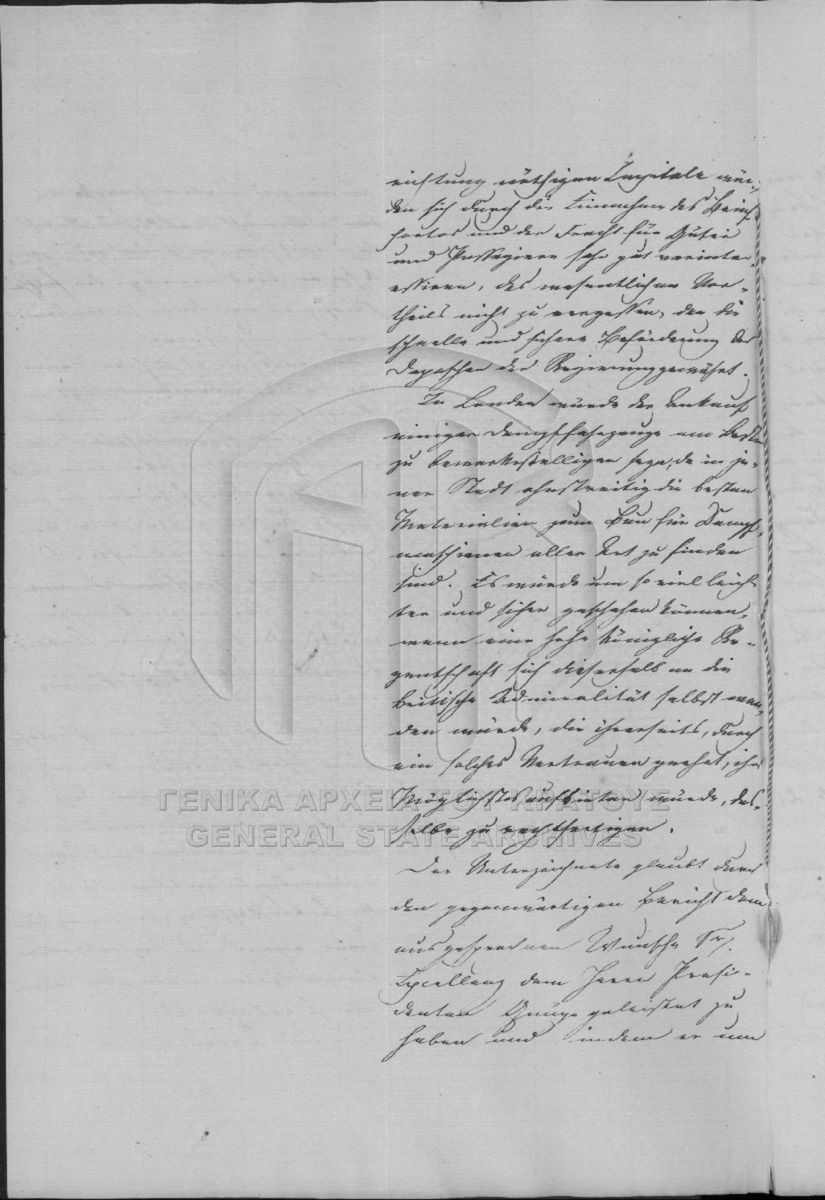 richtung nöthigen Capitale wür-
den sich durch die Einnahme des Brief-
portos und der Fracht für Güter
und Passagiere sehr gut verinter-
essiren, des wesentlichen Vor-
theils nicht zu vergessen, den die
schnelle und sichere Beförderung der
Depeschen der Regierung gewährt.
In London würde der Ankauf
einiger Dampffahrzeuge am Besten
zu bewerkstelligen seyn, da in je-
ner Stadt ohnstreitig die besten
Materialien zum Bau für Dampf-
maschienen aller Art zu finden
sind. Es würde um so viel leich-
ter und sicher geschehen können,
wenn eine hohe Königliche Re-
gentschaft sich dieserhalb an die
Britische Admiralität selbst wen-
den würde, die ihrerseits, durch
ein solches Vertrauen geehrt, ihr
Möglichstes aufbieten würde, das-
selbe zu rechtfertigen.
Der Unterzeichnete glaubt durch
den gegenwärtigen Bericht dem
ausgesprochnen Wunsche Sr.
Excellenz dem Herrn Präsi-
denten Genüge geleistet zu
haben und indem er um
ΓΕΝΙΚΑ ΑΡΧΕΙΑ ΤΟΥ ΚΡΑΤΟΥΣ
GENERAL STATE ARCHIVES